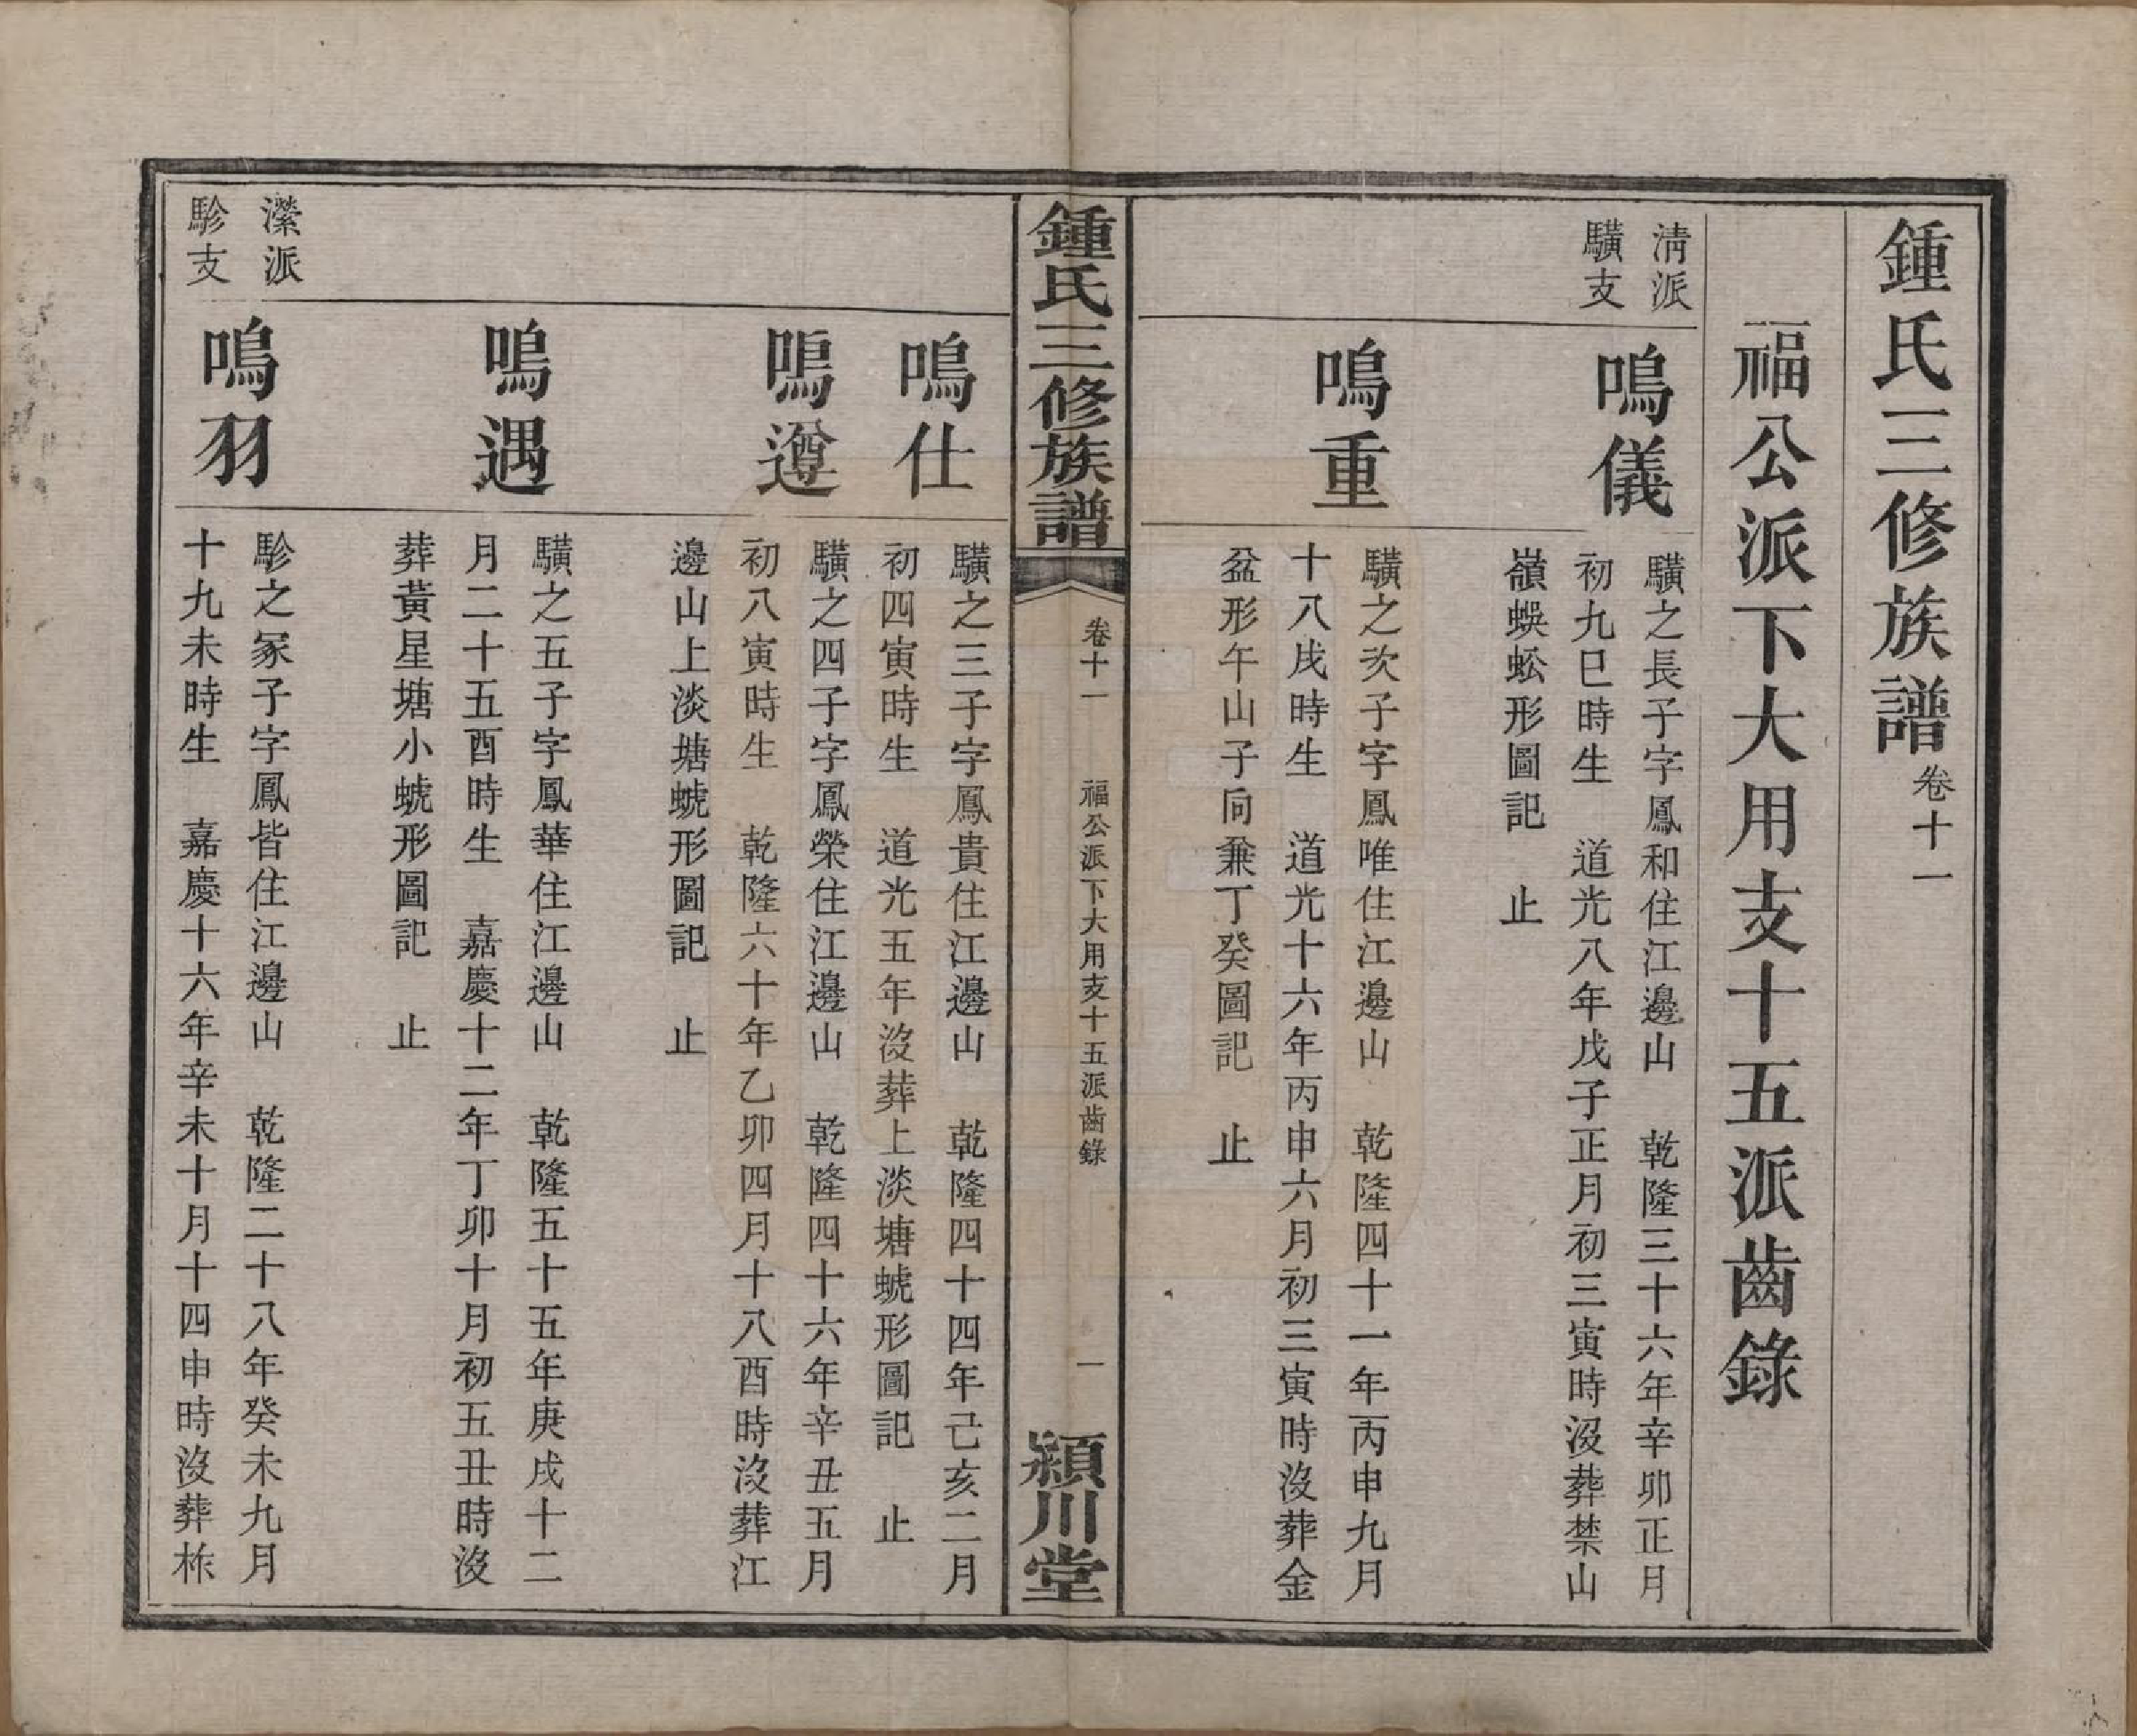 鍾氏三修族譜卷十一
福公派下大用支十五派齒錄
清派
驥支
鳴儀
驥之長子字鳳和住江邊山 乾隆三十六年辛卯正月
初九巳時生 道光八年戊子正月初三寅時沒葬禁山
嶺蜈蚣形圖記 止
鳴重
驥之次子字鳳唯住江邊山 乾隆四十一年丙申九月
十八戌時生 道光十六年丙申六月初三寅時沒葬金
盆形午山子向兼丁癸圖記 止
鍾氏三修族譜
卷十一
福公派下大用支十五派齒錄
一
潁川堂
鳴仕
驥之三子字鳳貴住江邊山 乾隆四十四年己亥二月
初四寅時生 道光五年沒葬上淡塘虓形圖記 止
鳴遵
驥之四子字鳳榮住江邊山 乾隆四十六年辛丑五月
初八寅時生 乾隆六十年乙卯四月十八酉時沒葬江
邊山上淡塘虓形圖記 止
鳴遇
驥之五子字鳳華住江邊山 乾隆五十五年庚戌十二
月二十五酉時生 嘉慶十二年丁卯十月初五丑時沒
葬黃星塘小虓形圖記 止
瀠派
駗支
鳴羽
駗之冢子字鳳皆住江邊山 乾隆二十八年癸未九月
十九未時生 嘉慶十六年辛未十月十四申時沒葬柞